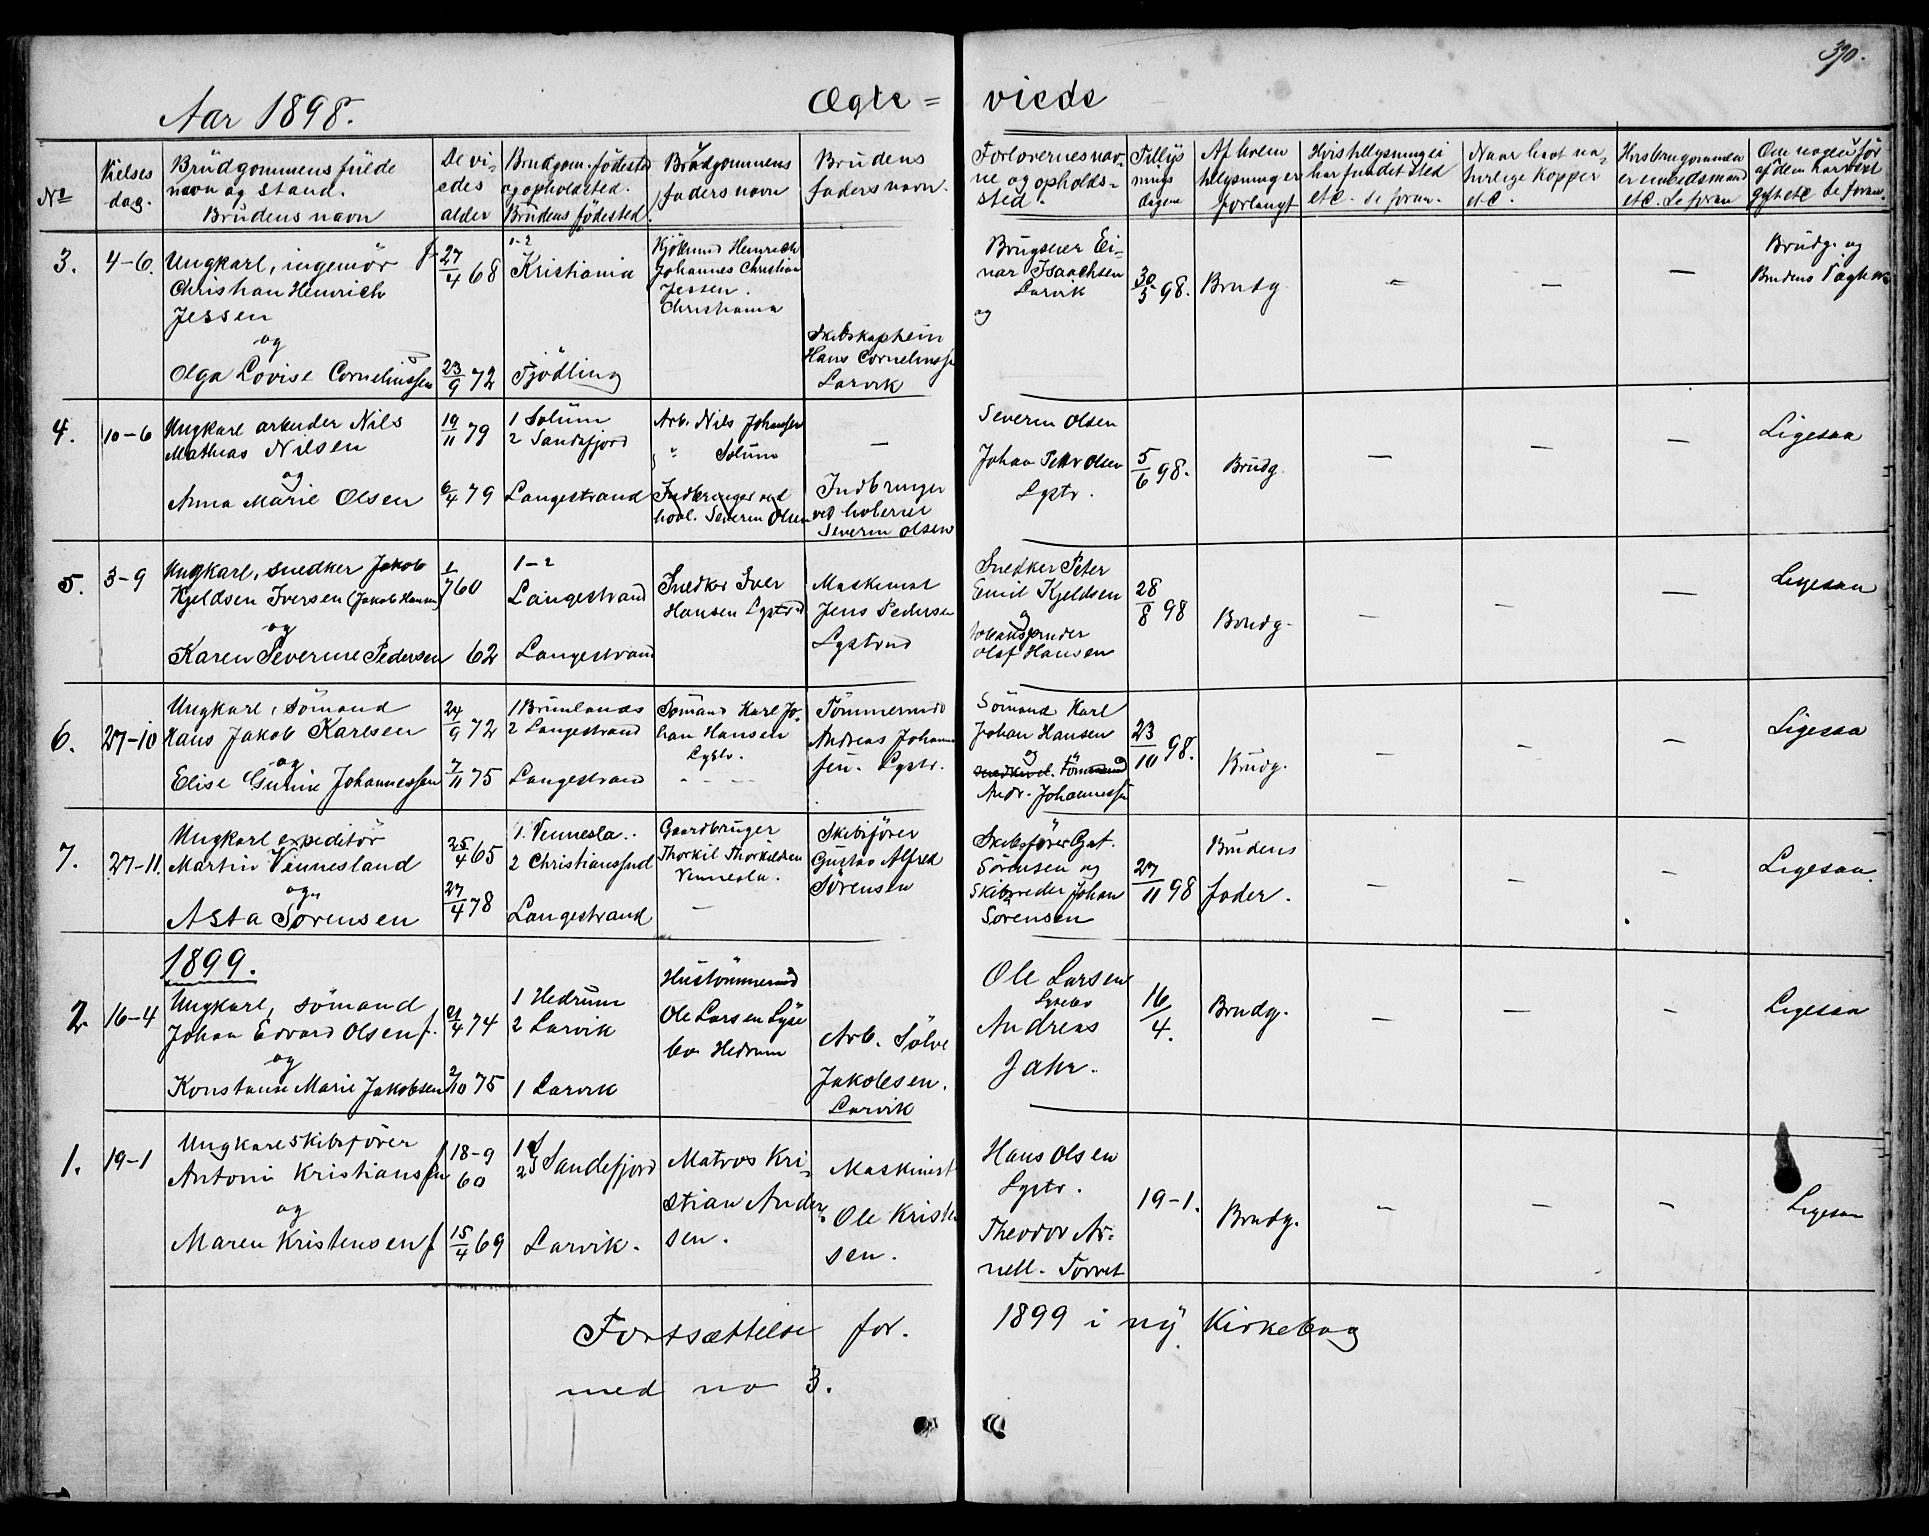 390.
Aar 1898.
Ægte = viede
No
Vielses dag.
Brudgommens fulde navn og stand. Brudens navn
De viedes alder
Brudgom. fødested og opholdsted. Brudens fødested.
Brudgommens faders navn
Brudens faders navn.
Forlovernes navne og opholdssted.
Tillysningsdagene
Af hvem tillysning er forlangt
Hvis tillysning ei har fundet sted etc. se foran.
Naar havt naturlige kopper etc.
Hvis brudgommen er embedsmand etc. Se foran
Om nogen før af dem har været gift etc. Se foran.
3.
4-6.
Ungkarl, ingeniør
Christian Heinrich
Jessen
og
Olga Lovise Corneliussen
27/4 68
23/9 72
1-2
Kristiania
Tjödling
Kjöbmd Heinrich
Johannes Christian
Jessen.
Christiania
Skibskaptein
Hans Corneliussen
Larvik
Brugseier Ei-
nar Isaachsen
Larvik
og
30/5 98.
Brudg
-
-
-
Brudg. og
Brudens
4.
10-6
Ungkarl arbeider Nils
Mathias Nilsen
og
Anna Marie Olsen
19/11 79
6/4 79
1 Solum
2 Sandefjord
Langestrand
Arb. Nils Johansen
" Solum
Indbringer ved
hovl. Severin Olsen
-
Indbringer
ved hvleriet
Severin Olsen
Severin Olsen
Johan Petter Olsen
Lgstr.
5/6 98.
Brudg.
-
-
-
Ligesaa
5.
3-9
Ungkarl, snedker Jakob
Kjeldsen Iversen (Jakob Hansen)
og
Karen Severine Pedersen
1/7 60
62
1-2
Langestrand
Langestrand
Snedker Iver
Hansen Lgstrd
Maskinist
Jens Pedersen
Lgstrnd
Snedker Peter
Emil Kjeldsen
og
Olaf Hansen
28/8 98
Brudg.
-
-
-
Ligesaa
6.
27-10
Ungkarl, sömand
Hans Jakob Karlsen
og
Elise Gurine Johannessen
24/9 72
7/11 75
1 Brunlanes
2 Langestrand
Langestrand
Sömand Karl Jo-
han Hansen
Lgstr.
- - -
Tömmermd
Andreas Johannes
sen. Lgstr.
Sömand Karl
Johan Hansen
og
Tömmermd
Andr. Johannessen
23/10 98.
Brudg.
-
-
-
Ligesaa
7.
27-11.
Ungkarl expeditör
Martin Vennesland
og
Asta Sørensen
25/4 65
27/4 78
1. Vennesla.
2 Christianssund
Langestrand
Gaardbruger
Thorkil Thorkildsen
Vennesla.
-
Skibsfører
Gustav Alfred
Sørensen
Skibsfører Gst.
Sørensen og
Skibsreder Johan
Sørensen
27/11 98
Brudens
fader.
-
-
-
Ligesaa.
1899.
2
16-4
Ungkarl, sömand
Johan Edvard Olsen f.
og
Konstanse Marie Jakobsen
21/4 74
2/10 75
1 Hedrum
2 Larvik
1 Larvik
Hustömmermd
Ole Larsen Lyse
bo Hedrum
Arb. Sölve
Jakobsen.
Larvik
Ole Larsen
Lysebo
Andreas
Jahr.
16/4.
Brudg.
-
-
-
Ligesaa
1.
19-1
Ungkarl skibsfører
Antoni Kristiansen
og
Maren Kristensen f
18-9
60
15/4 69
1
2 Sandefjord
Larvik.
Matros Kri-
stian Ander
sen.
Maskinist
Ole Kristen
sen.
Hans Olsen
Lgstr.
Theodor Ar-
nell. Torvet
19-1.
Brudg.
-
-
-
Ligesaa
Fortsættelse for. 1899 i ny Kirkebog
med no 3.